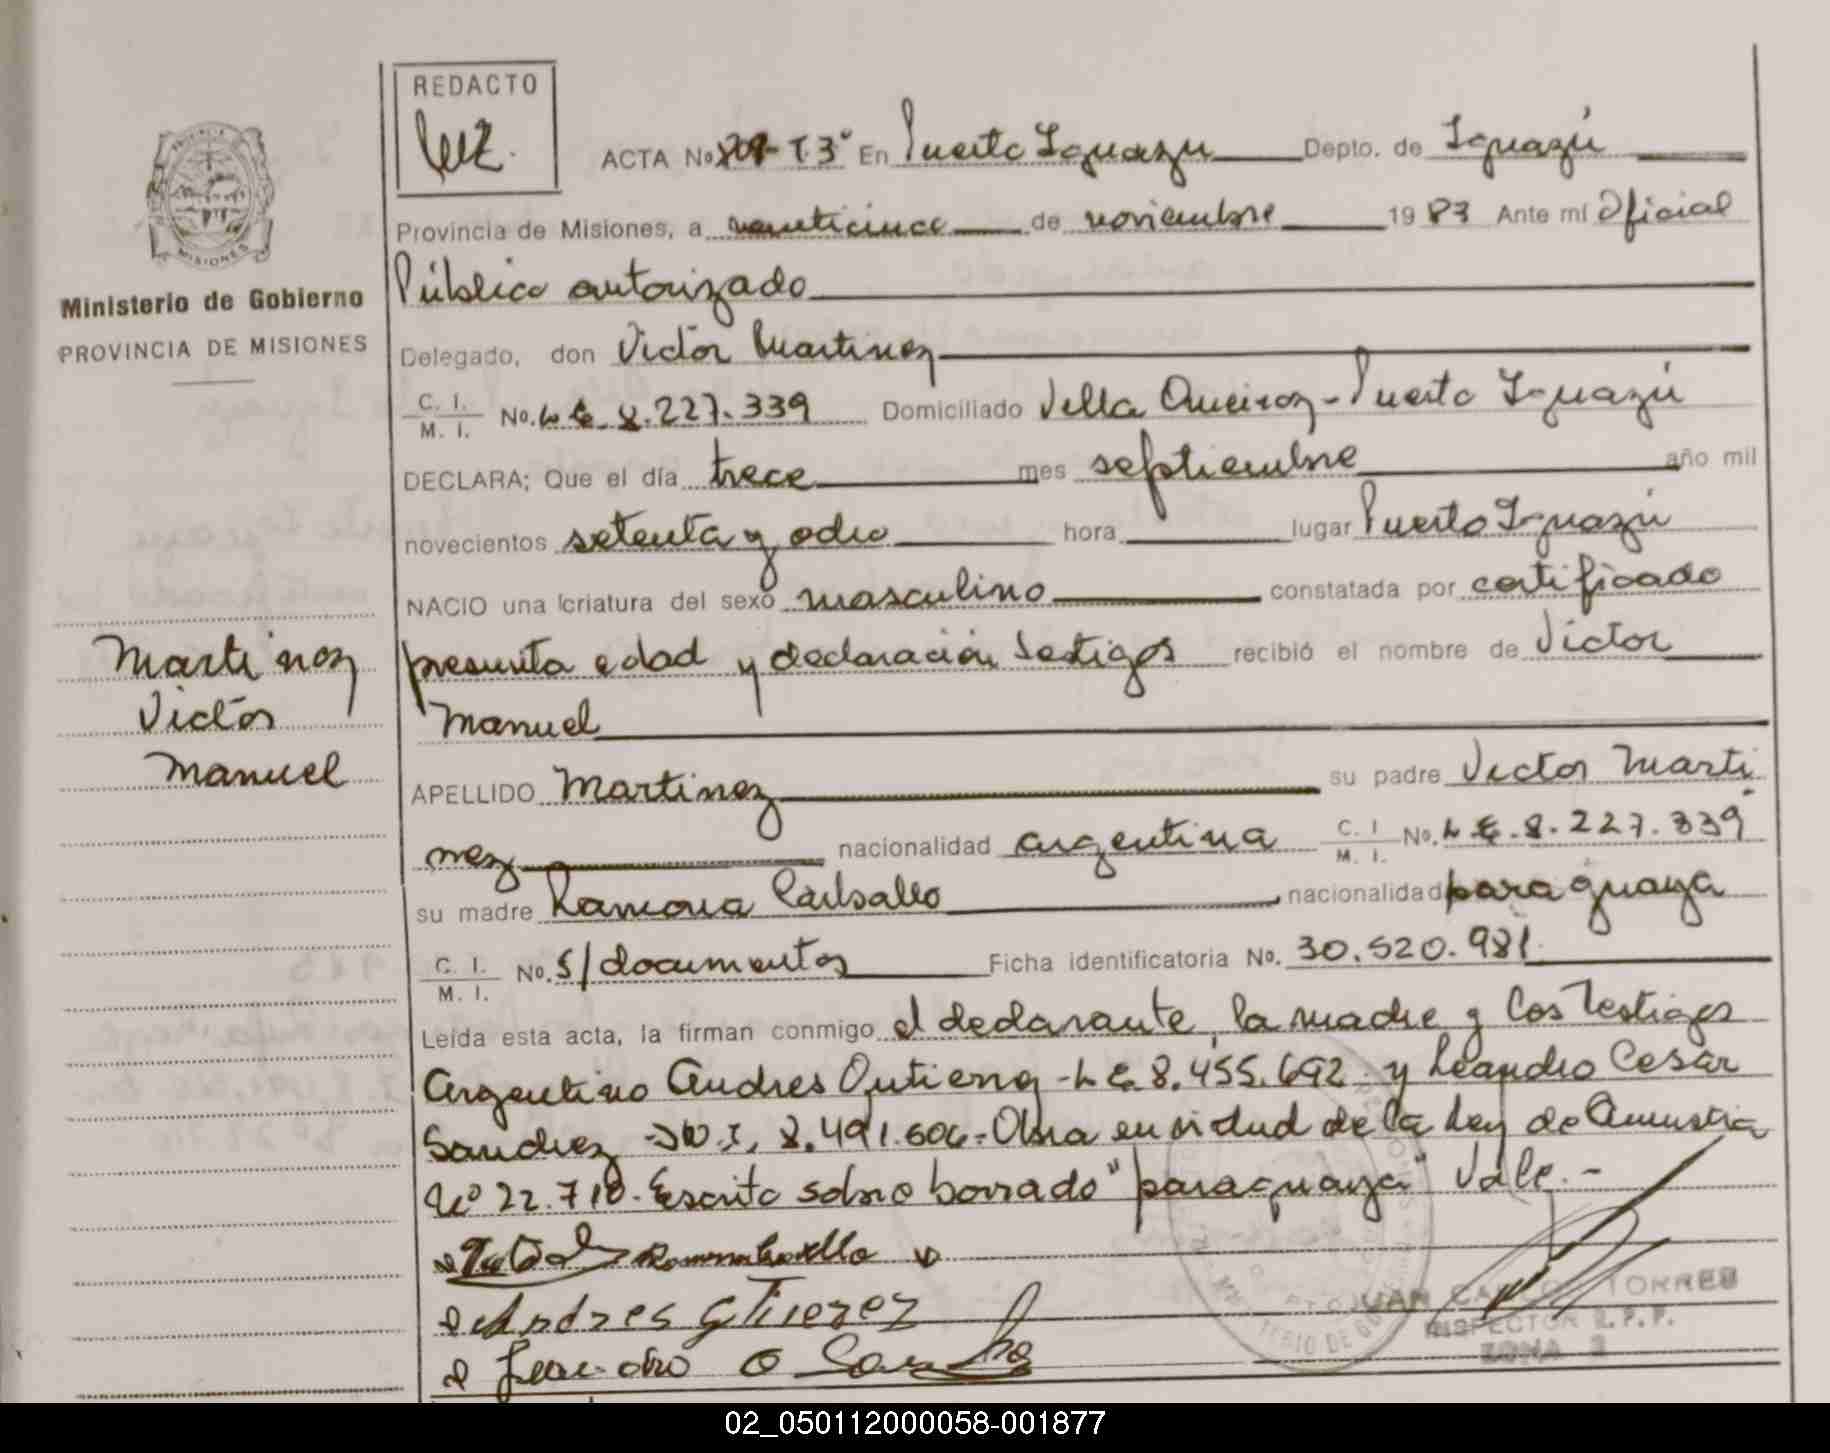 REDACTO
Luz.
ACTA No. 709-T.3° En Puerto Iguazu Depto. de Iguazú
Provincia de Misiones, a veinticinco de noviembre 1983 Ante mí Oficial
Público autorizado
Ministerio de Gobierno
PROVINCIA DE MISIONES
Delegado, don Victor Martinez
C. I. / M. I. No. L E 8.227.339 Domiciliado Villa Queiroz - Puerto Iguazú
DECLARA; Que el día trece mes septiembre año mil
novecientos setenta y ocho hora lugar Puerto Iguazú
NACIO una criatura del sexo masculino constatada por certificado
presunta edad y declaración testigos recibió el nombre de Victor
Manuel
Martinez
Victor
Manuel
APELLIDO Martinez su padre Victor Marti
nez nacionalidad argentina C. I. / M. I. No. L E. 8.227.339
su madre Ramona Carballo nacionalidad paraguaya
C. I. / M. I. No. S/documentos Ficha identificatoria No. 30.520.981
Leída esta acta, la firman conmigo el declarante, la madre y los Testigos
Argentino Andres Gutierrez - L E 8.455.692 y Leandro Cesar
Sanchez - D.N.I. 8.491.606 - Obra en virtud de la Ley de Amnistia
Nº 22.710. Escrito sobre borrado "paraguaya" Vale.-
Andres Gtierez
JUAN CARLOS TORRES
INSPECTOR R.P.P.
ZONA 2
02_050112000058-001877